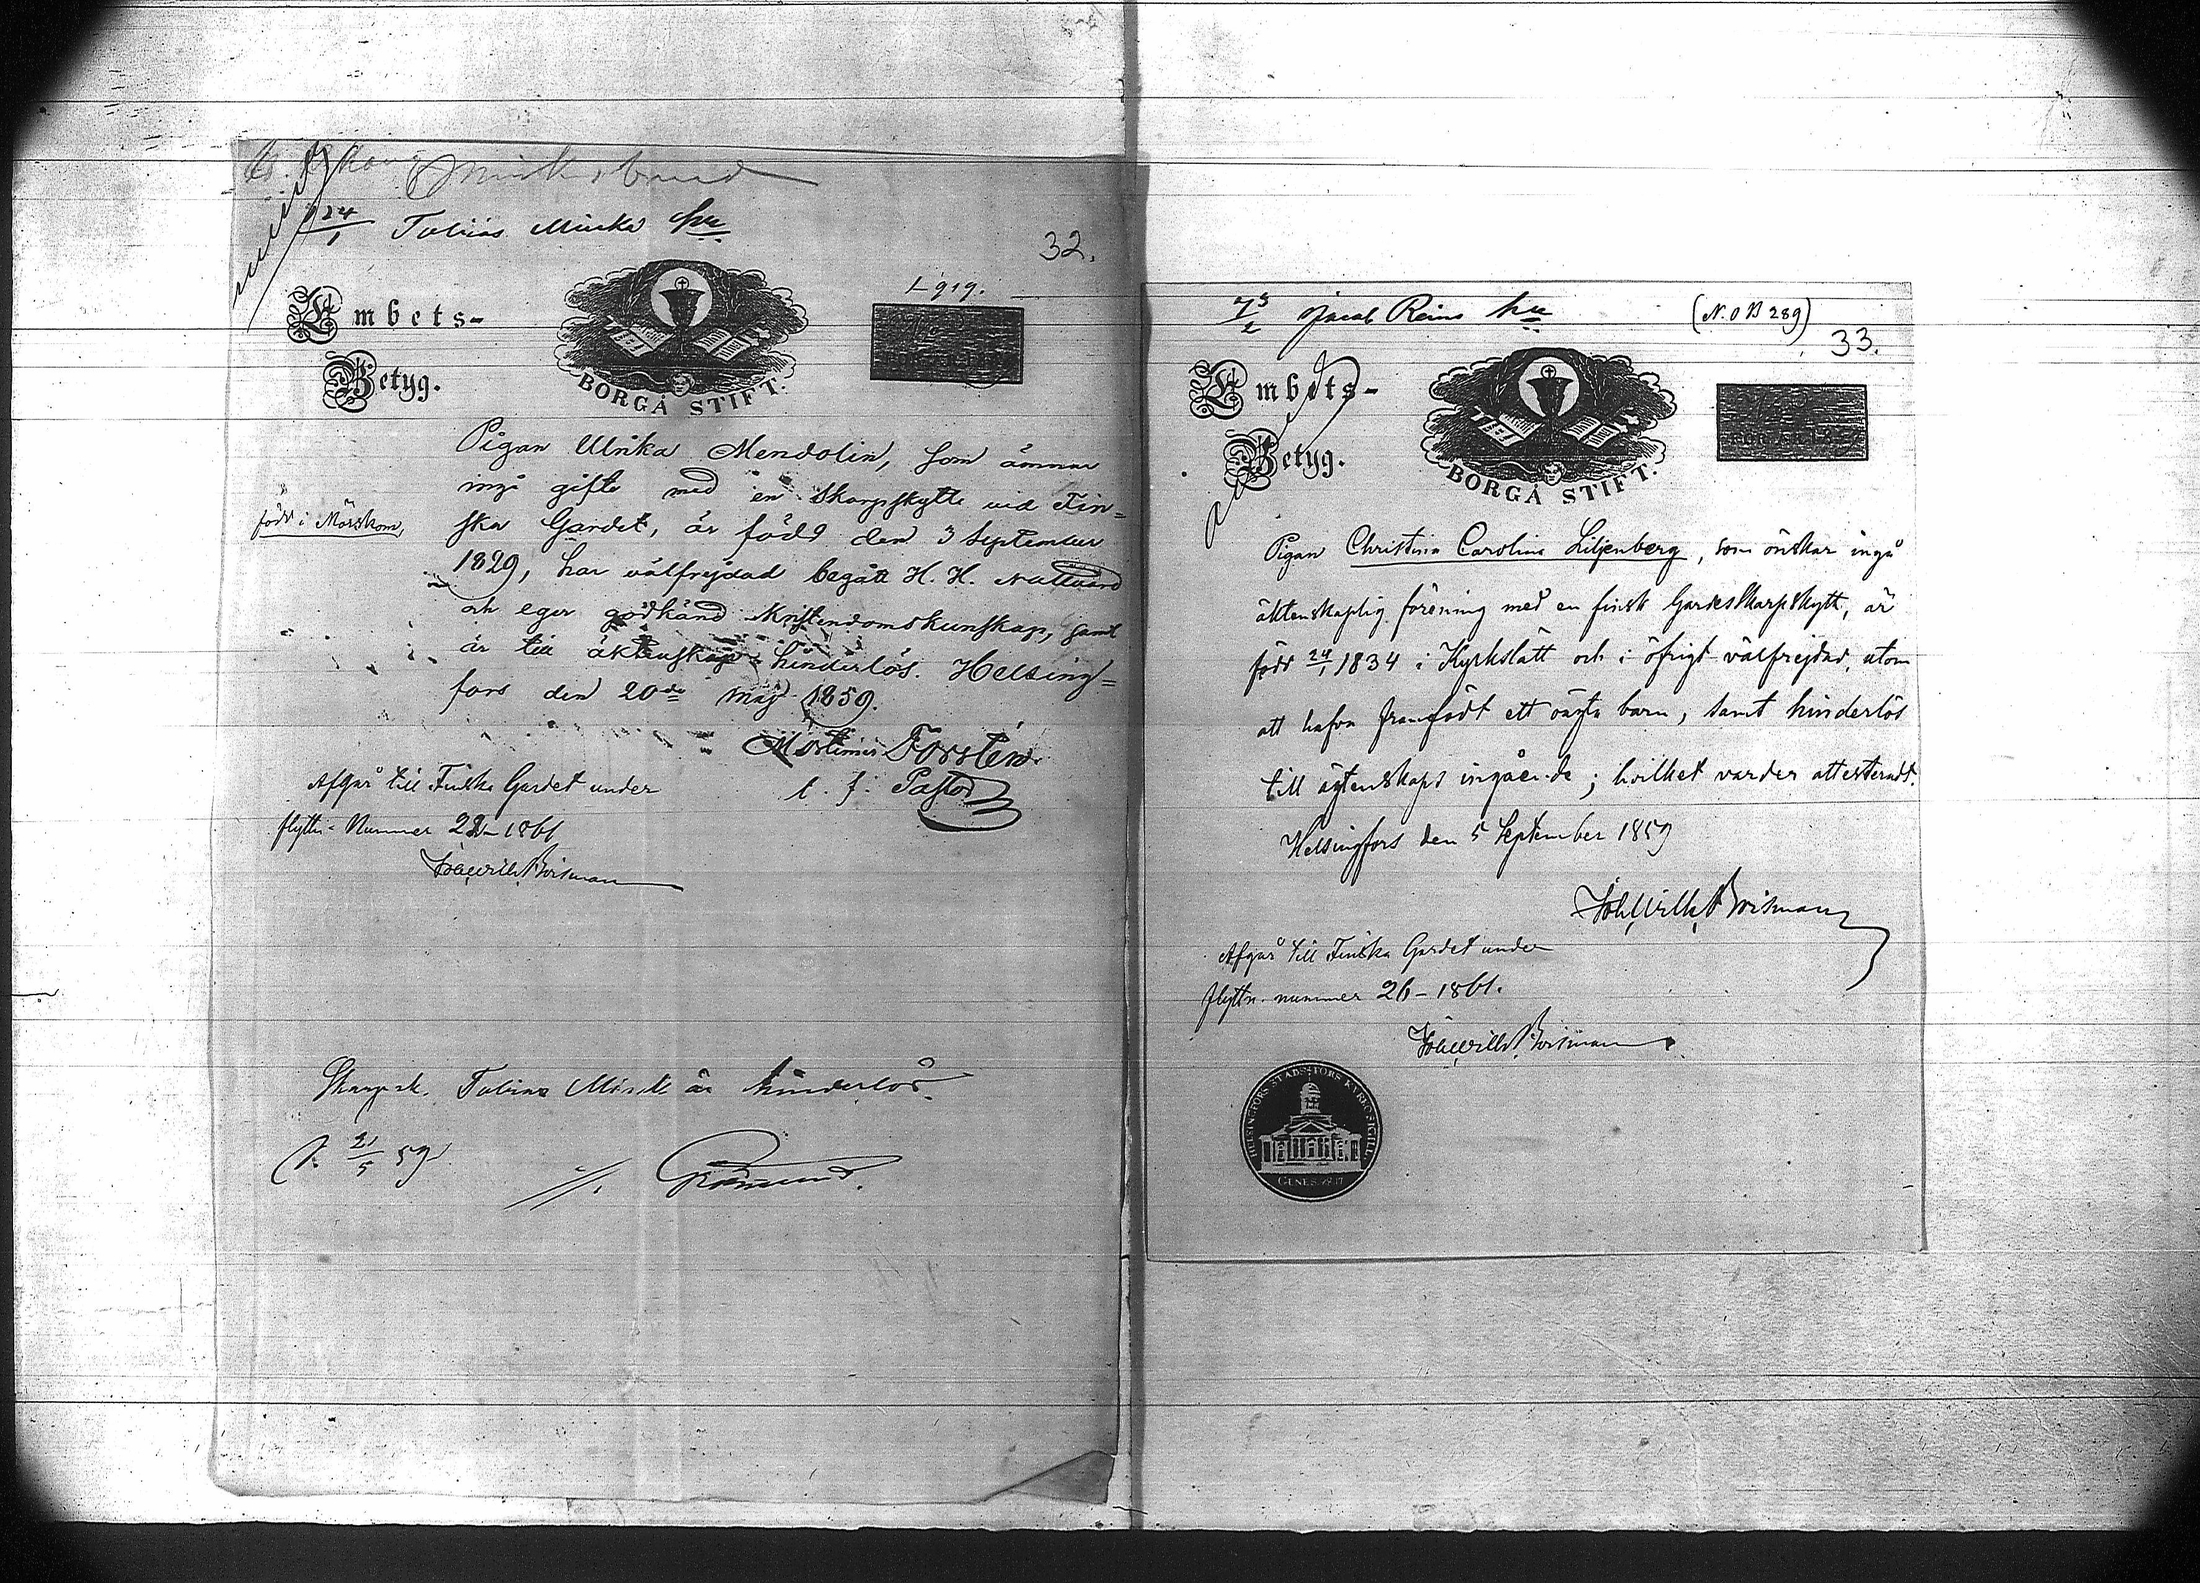 24/1 Tobias Mürk hu
32.
L 919.
Embets-
Betyg.
BORGÅ STIFT.
Pigan Ulrika Mendolin, som ämnar
ingå gifte med en Skarpskytte vid Fin=
ska Gardet, är född den 3 September
född i Mörskom,
1829, har välfrejdad begått H. H. Nattvard
och eger godkänd Kristendomskunskap, samt
är till äktenskap hinderlös. Helsing=
fors den 20de Maj 1859.
Mortimer Forstén
t. f. Pastor
Afgår till Finska Gardet under
flyttn. Nummer 22 - 1861
Joh. Wilh. Brisman
Skarpsk. Tobias Mürk är hinderlös.
21/5 59
73/2 Jacob Reins hu
(N. O B 289)
33.
Embets-
Betyg.
BORGÅ STIFT.
Pigan Christina Carolina Liljenberg, som önskar ingå
äktenskaplig förening med en finsk Gardesskarpskytt, är
född 24/1 1834 i Kyrkslätt och i öfrigt välfrejdad, utom
att hafva framfödt ett oägta barn, samt hinderlös
till ägtenskaps ingående; hvilket varder attesteradt.
Helsingfors den 5 September 1859
Joh. Wilh. Brisman
Afgår till Finska Gardet under
flyttn. nummer 26 - 1861.
Joh. Wilh. Brisman
HELSINGFORS STADSFÖRS. KYRKO SIGILL.
GENES. 28.17